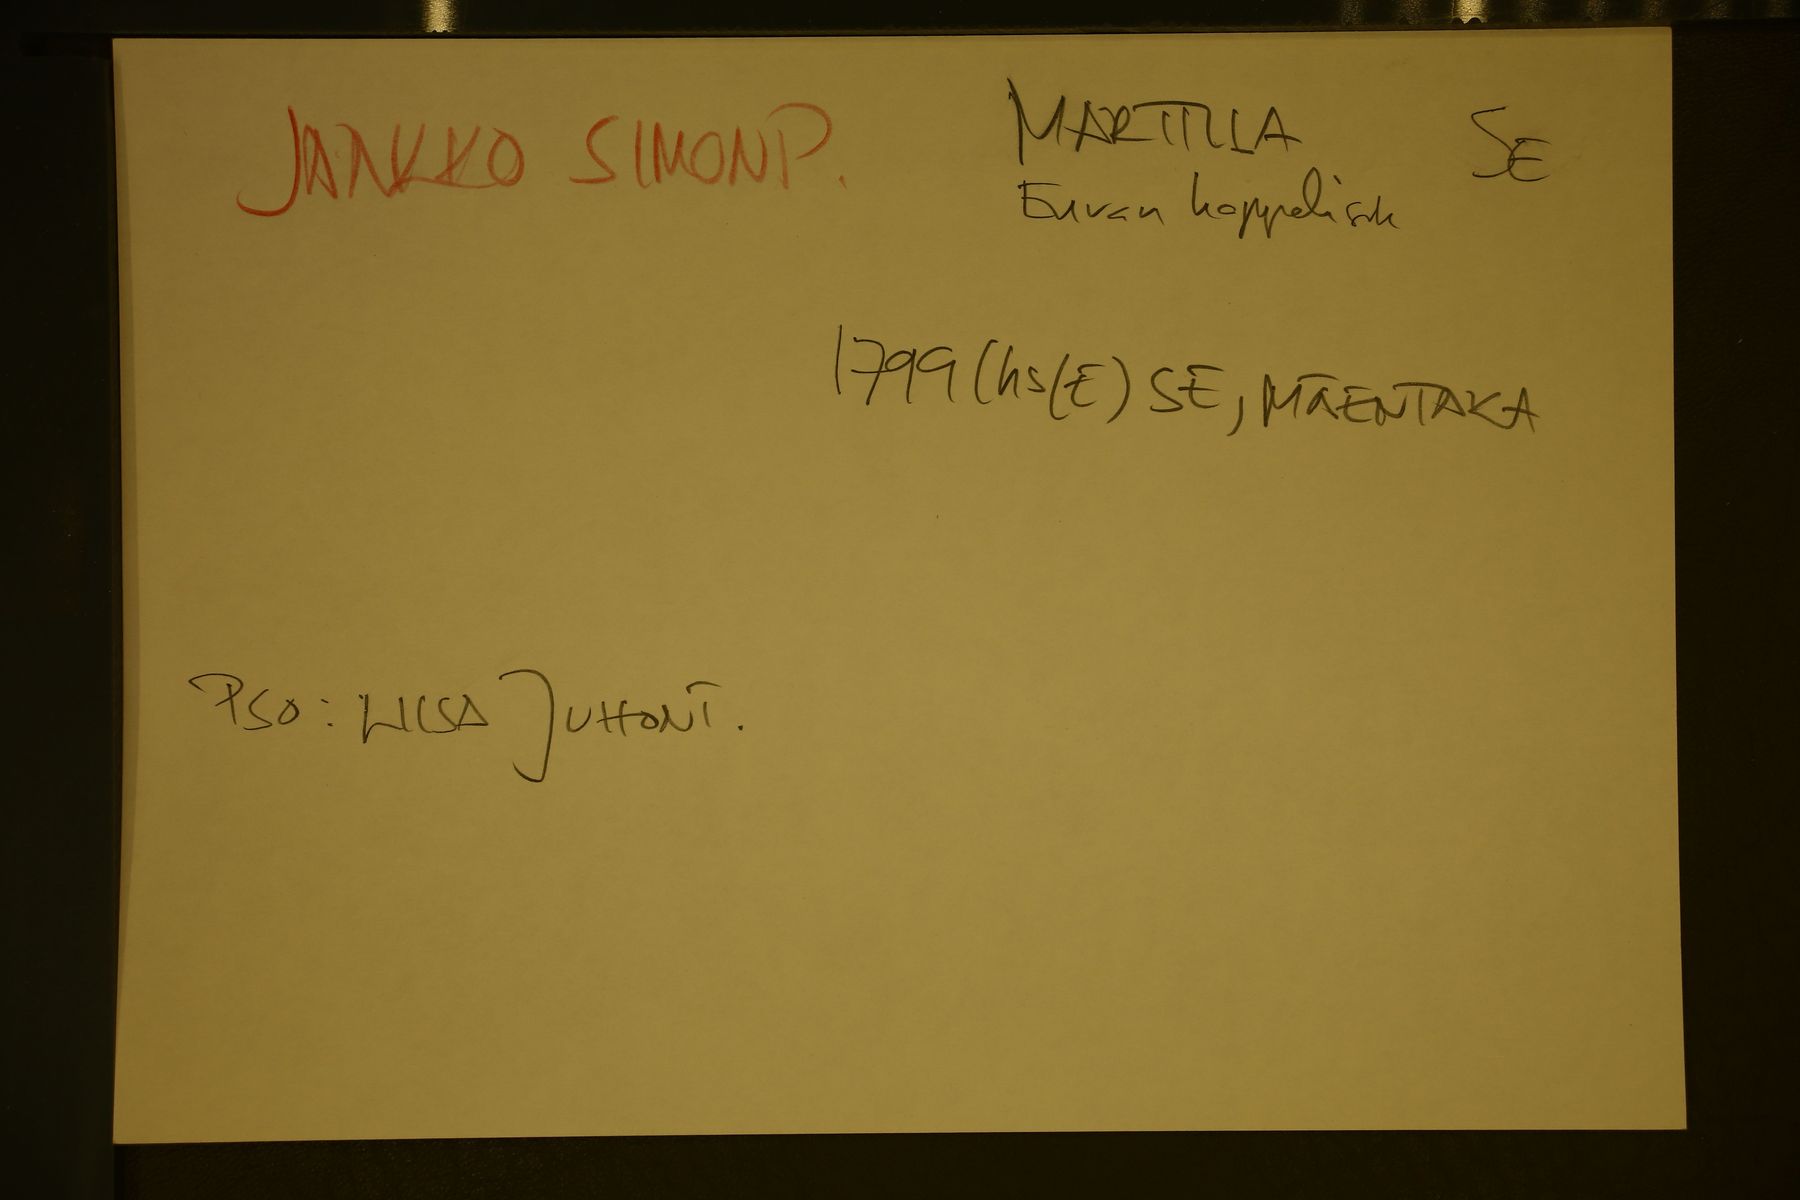 JAAKKO SIMONP. MARTTILA SE
Euran kappelissk
1799 (hs(E) SE, MÄENTAKA
PSO: LIISA JUHONT.